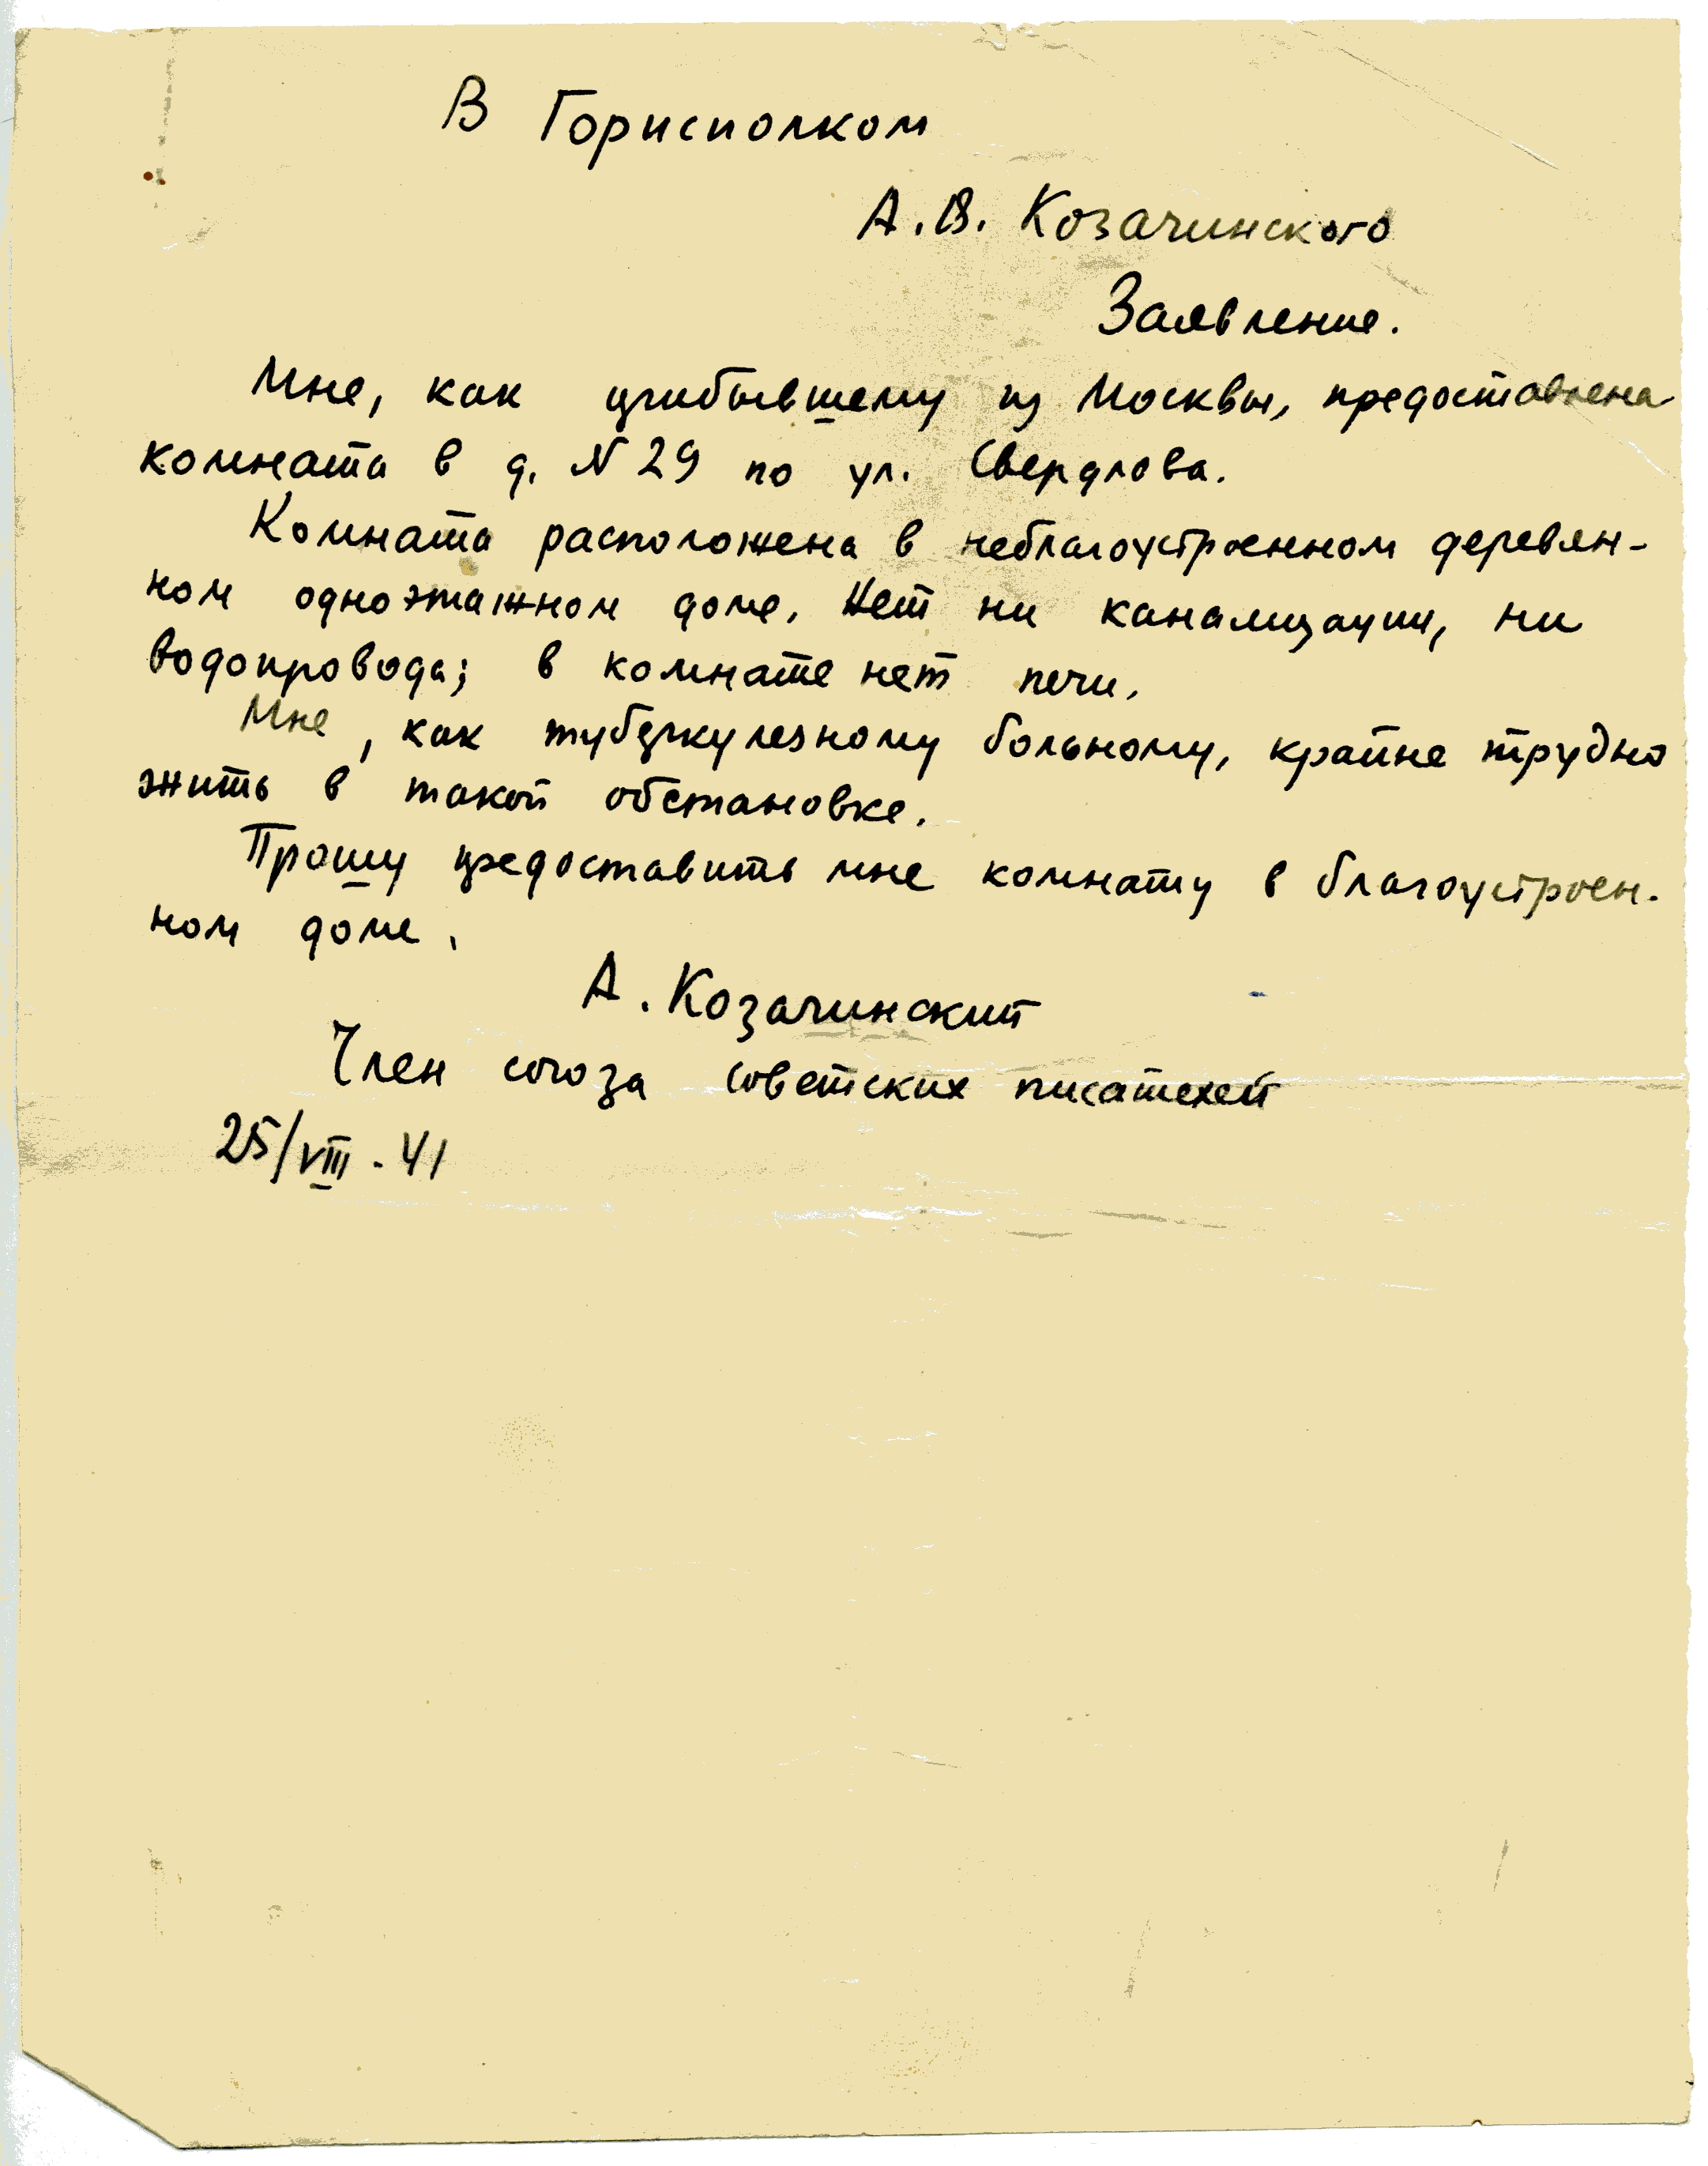 В Горисполком
А.В. Козачинского
Заявление.
Мне, как прибывшему из Москвы, предоставлена
комната в д. N 29 по ул. Свердлова.
Комната расположена в неблагоустроенном деревян-
ном одноэтажном доме. Нет ни канализации, ни
водопровода; в комнате нет печи.
Мне, как туберкулезному больному, крайне трудно
жить в такой обстановке.
Прошу предоставить мне комнату в благоустроен-
ном доме.
А. Козачинский
Член союза советских писателей
25/VIII - 41